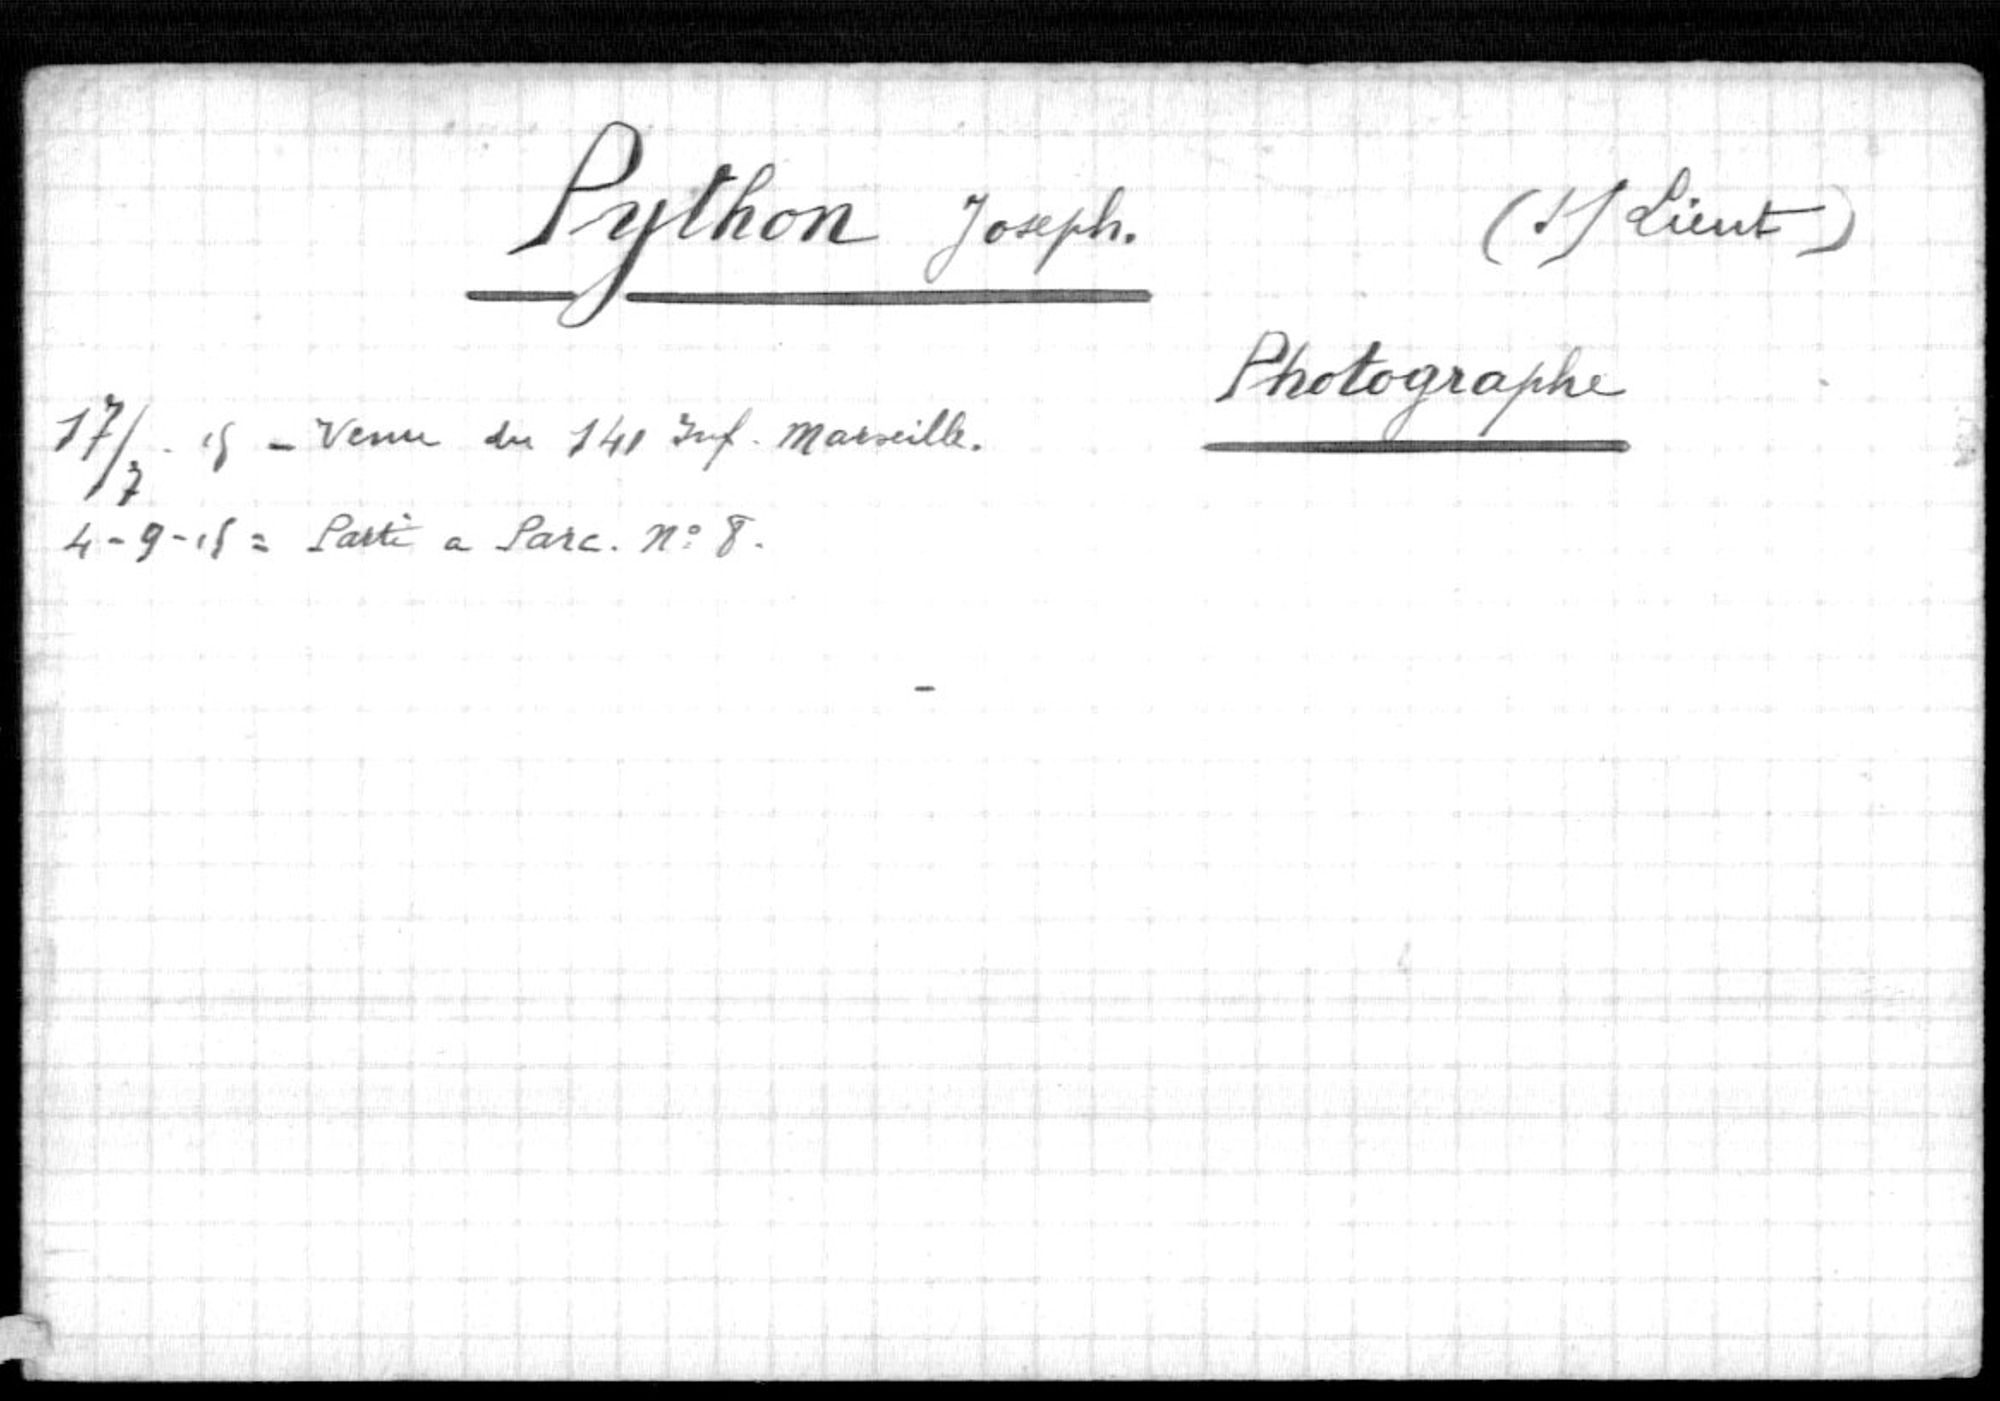 Python Joseph. (S/Lieut)
Photographe
17/7 - 15 - Venu du 141 Inf. Marseille.
4-9-15 = Parti a Parc. N° 8.